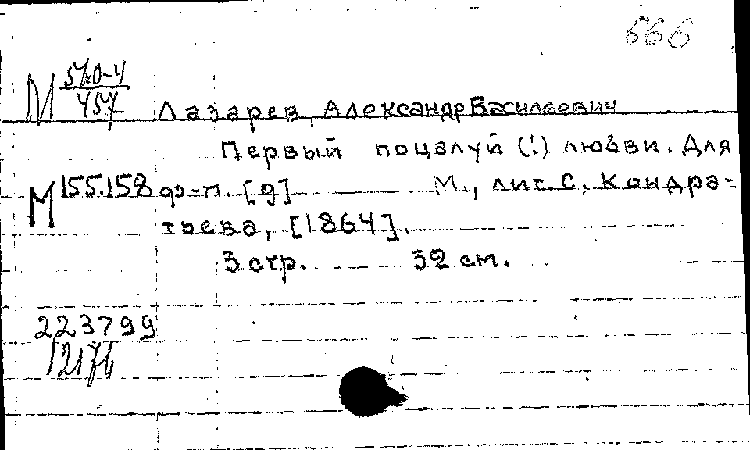 666
М 520-4/457
Лазарев, Александр Васильевич
Первый поцалуй (!) любви. Для
М 155.158 ф-п. [g] М., лит. С. Кондра-
тьева, [1864].
3 стр. 32 см.
223799